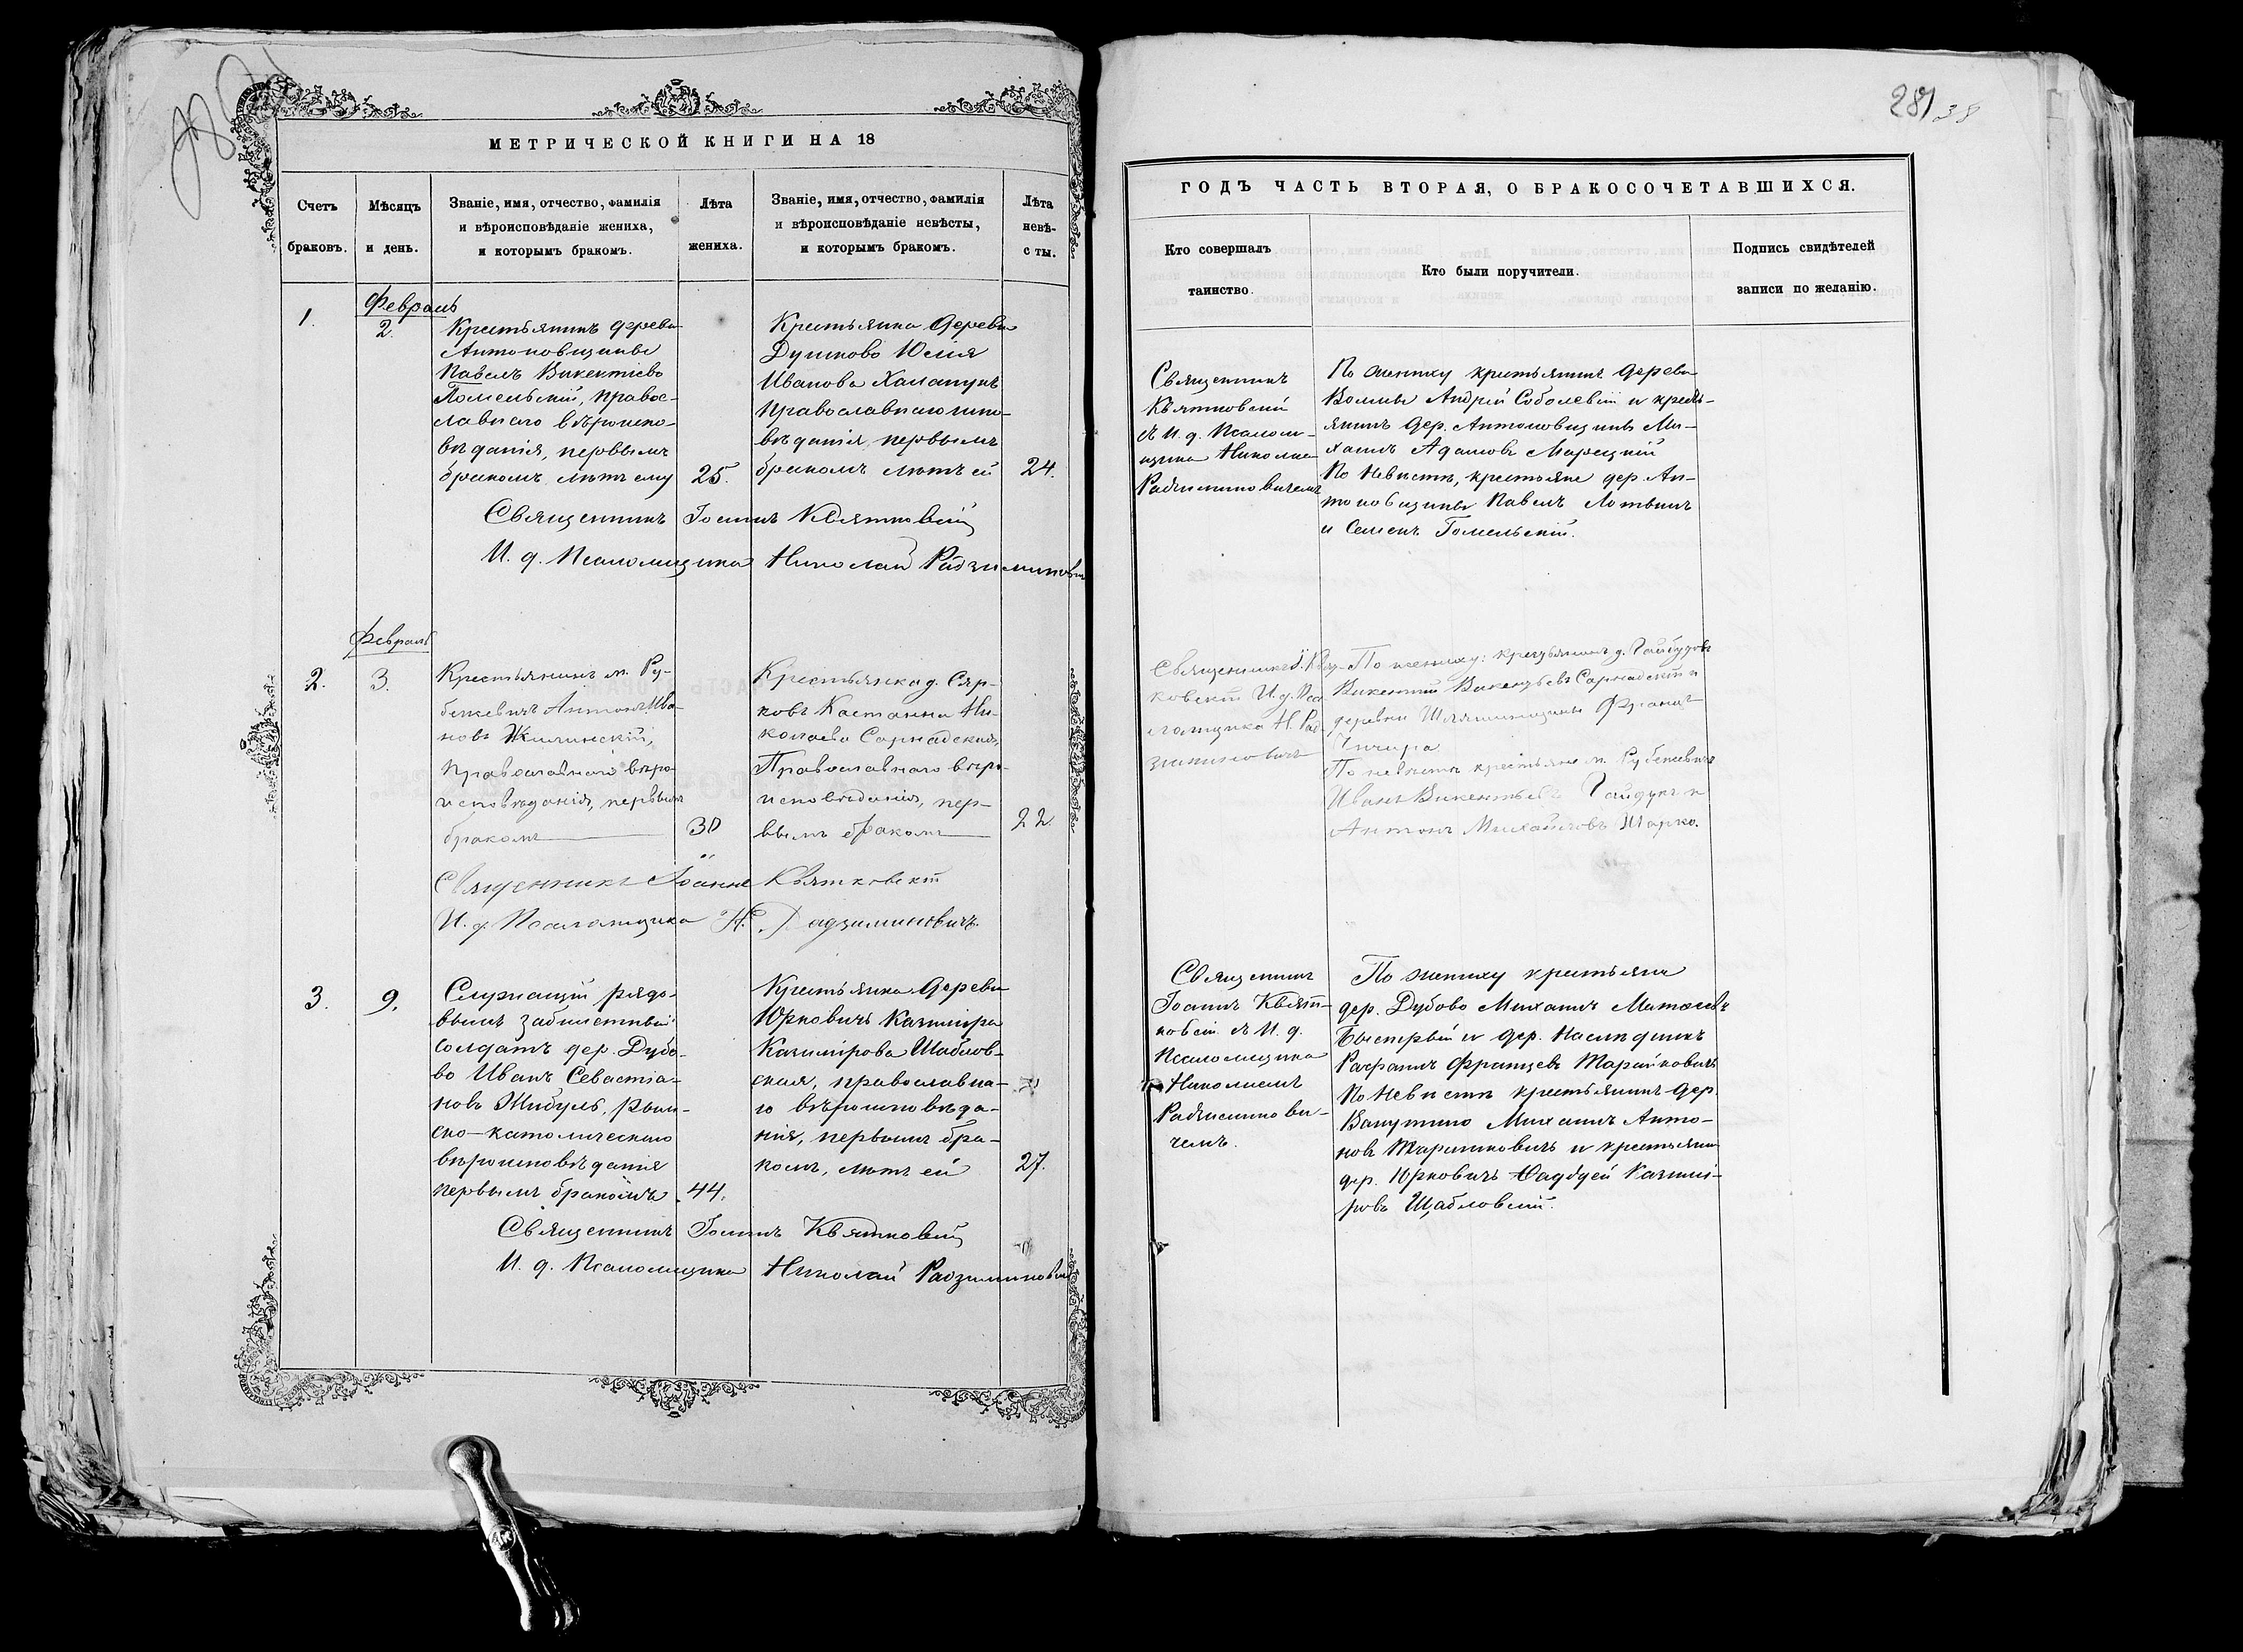 МЕТРИЧЕСКОЙ КНИГИ НА 18
Счетъ браковъ.
Мѣсяцъ и день.
Званіе, имя, отчество, фамилія
и вѣроисповѣданіе жениха,
и которымъ бракомъ.
Лѣта жениха.
Званіе, имя, отчество, фамилія
и вѣроисповѣданіе невѣсты,
и которымъ бракомъ.
Лѣта
невѣ-
сты.
1.
Февраль
2.
Крестьянинъ деревни
Антоновщины
Павелъ Викентіевъ
Гомельскій, правос-
лавнаго вѣроиспо-
вѣданія, первымъ
бракомъ лѣтъ ему
25.
Крестьянка деревни
Душково Юлія
Иванова
православнаго испо-
вѣданія, первымъ
бракомъ лѣтъ ей
24.
Священникъ Іоаннъ Квятковскій
И. д. Псаломщика Николай Радзиминовичъ
Февраль
2.
3.
Крестьянинъ м. Ру-
бежевичъ Антонъ Ива-
новъ Жилинскій,
Православнаго вѣро-
исповѣданія, первымъ
бракомъ
30
Крестьянка д. Сяр-
ковъ Констанція Ни-
колаева Сарнадская,
Православнаго вѣро-
исповѣданія, пер-
вымъ бракомъ
22.
Священникъ Іоаннъ Квятковскій
И. д. Псаломщика Н. Радзиминовичъ.
3.
9.
Служащій рядо-
вымъ забилетный
солдатъ дер. Дубо-
во Иванъ Севастіа-
новъ Жибуль, рим-
ско-католическаго
вѣроисповѣданія
первымъ бракомъ
44.
Крестьянка деревни
Юрковичъ Казимира
Казимірова Шаблов-
ская, православна-
го вѣроисповѣда-
нія, первымъ бра-
комъ, лѣтъ ей
27.
Священникъ Іоаннъ Квятковскій
И. д. Псаломщика Николай Радзиминовичъ
281 38
ГОДЪ ЧАСТЬ ВТОРАЯ, О БРАКОСОЧЕТАВШИХСЯ.
Кто совершалъ
таинство.
Кто были поручители.
Подпись свидѣтелей
записи по желанію.
Священникъ
Квятковскій
съ И. д. Псалом-
щика Николаемъ
Радзиминовичемъ
По жениху крестьянинъ деревни
Волмы Андрей Соболевскій и кресть-
янинъ дер. Антоновщины Ми-
хаилъ Адамовъ Марецкій
По Невѣстѣ, крестьяне дер. Ан-
тоновщины Павелъ Лотышъ
и Семенъ Гомельскій.
Священникъ І. Квят-
ковскій И. д. Пса-
ломщика Н. Рад-
зиминовичъ
По жениху: крестьянинъ д. Гайдуковъ
Викентій Викентьевъ Сарнадскій и
деревни Францъ
По невѣстѣ крестьяне м. Рубежевичъ
Иванъ Викентьевъ Гайдукъ и
Антонъ Михайловъ Шарко.
Священникъ
Іоаннъ Квят-
ковскій съ И. д.
Псаломщика
Николаемъ
Радзиминови-
чемъ.
По жениху крестьяне
дер. Дубово Михаилъ Матвѣевъ
Быстрый и дер. Насиндинкъ
Рафаилъ Францевъ Марайковичъ
По Невѣстѣ крестьянинъ дер.
Вапутино Михаилъ Анто-
новъ Мариновичъ и крестьянинъ
дер. Юрковичъ Фаддей Казимі-
ровъ Шабловскій.